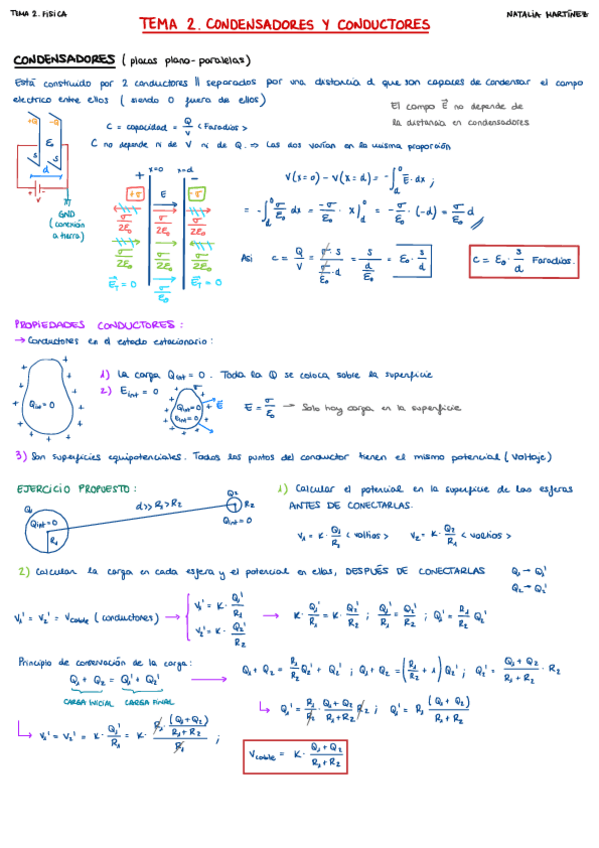 TEMA 2. FISICA
NATALIA MARTÍNEZ
TEMA 2. CONDENSADORES Y CONDUCTORES
CONDENSADORES (placas plano-paralelas)
Está construido por 2 conductores || separados por una distancia d que son capaces de condensar el campo
electrico entre ellos (siendo 0 fuera de ellos)
El campo E⃗ no depende de
la distancia en condensadores
+Q -Q
E₀
S S
d
V
GND
(conexión
a tierra)
C = capacidad = Q/V <Faradios>
C no depende ni de V ni de Q. → Las dos varían en la misma proporción
+ x=0 x=d -
+σ E -σ
σ/2E₀ σ/2E₀ σ/2E₀
σ/2E₀ σ/2E₀ σ/2E₀
E⃗T = 0 σ/E₀ E⃗T = 0
V(x=0) - V(x=d) = -∫_d^0 E⃗·dx ;
= -∫_d^0 σ/E₀ dx = -σ/E₀ · x]_d^0 = -σ/E₀ · (-d) = σ/E₀ d
Asi C = Q/V = σ·S / (σ/E₀ · d) = S / (d/E₀) = E₀ · S/d
C = E₀ · S/d Faradios.
PROPIEDADES CONDUCTORES:
→ Conductores en el estado estacionario:
Qint = 0
1) La carga Qint = 0. Toda la Q se coloca sobre la superficie
2) Eint = 0
Qint = 0
Eint = 0
σ
E
E = σ/E₀ → Solo hay carga en la superficie
3) Son superficies equipotenciales. Todos los puntos del conductor tienen el mismo potencial (voltaje)
EJERCICIO PROPUESTO:
Q₁
Qint = 0
R₁
d >> R₁ > R₂
Q₂
R₂
Qint = 0
1) Calcular el potencial en la superficie de las esferas
ANTES DE CONECTARLAS.
V₁ = K · Q₁/R₁ <voltios> V₂ = K · Q₂/R₁ <voltios>
2) Calcular la carga en cada esfera y el potencial en ellas, DESPUÉS DE CONECTARLAS
Q₁ → Q₁'
Q₂ → Q₂'
V₁' = V₂' = Vcable (conductores) → { V₁' = K · Q₁'/R₁
V₂' = K · Q₂'/R₂
→ K · Q₁'/R₁ = K · Q₂'/R₂ ; Q₁'/R₁ = Q₂'/R₂ ; Q₁' = R₁/R₂ Q₂'
Principio de conservación de la carga:
Q₁ + Q₂ = Q₁' + Q₂'
CARGA INICIAL CARGA FINAL
→ Q₁ + Q₂ = R₁/R₂ Q₂' + Q₂' ; Q₁ + Q₂ = (R₁/R₂ + 1) Q₂' ; Q₂' = (Q₁ + Q₂)/(R₁ + R₂) · R₂
↳ Q₁' = R₁/R₂ · (Q₁ + Q₂)/(R₁ + R₂) R₂ ; Q₁' = R₁ (Q₁ + Q₂)/(R₁ + R₂)
↳ V₁' = V₂' = K · Q₁'/R₁ = K · R₁ · (Q₁ + Q₂)/(R₁ + R₂) / R₁ ;
Vcable = K · (Q₁ + Q₂)/(R₁ + R₂)